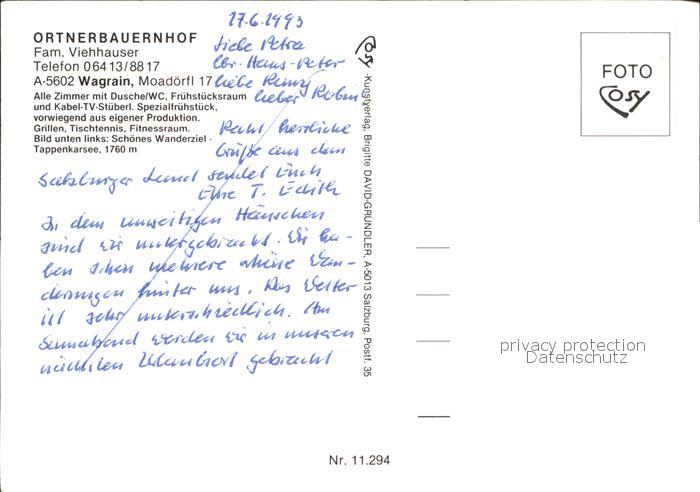 ORTNERBAUERNHOF
Fam. Viehhauser
Telefon 0 64 13/88 17
A-5602 Wagrain, Moadörfl 17
Alle Zimmer mit Dusche/WC, Frühstücksraum
und Kabel-TV-Stüberl. Spezialfrühstück,
vorwiegend aus eigener Produktion.
Grillen, Tischtennis, Fitnessraum.
Bild unten links: Schönes Wanderziel -
Tappenkarsee, 1760 m
17.6.1993
Liebe Petra
lbr. Hans-Peter
liebe Romy
lieber Robin
Recht herrliche
Grüße aus dem
Salzburger Land sendet Euch
Eure T. Edith
In dem unseitigen Häuschen
sind wir untergebracht. Wir ha-
ben schon mehrere schöne Wan-
derungen hinter uns. Das Wetter
ist sehr unterschiedlich. Am
Sonnabend werden wir in unseren
nächsten Urlaubsort gebracht
Cosy
Kunstverlag, Brigitte DAVID-GRÜNDLER, A-5013 Salzburg, Postf. 35
FOTO
Cosy
privacy protection
Datenschutz
Nr. 11.294